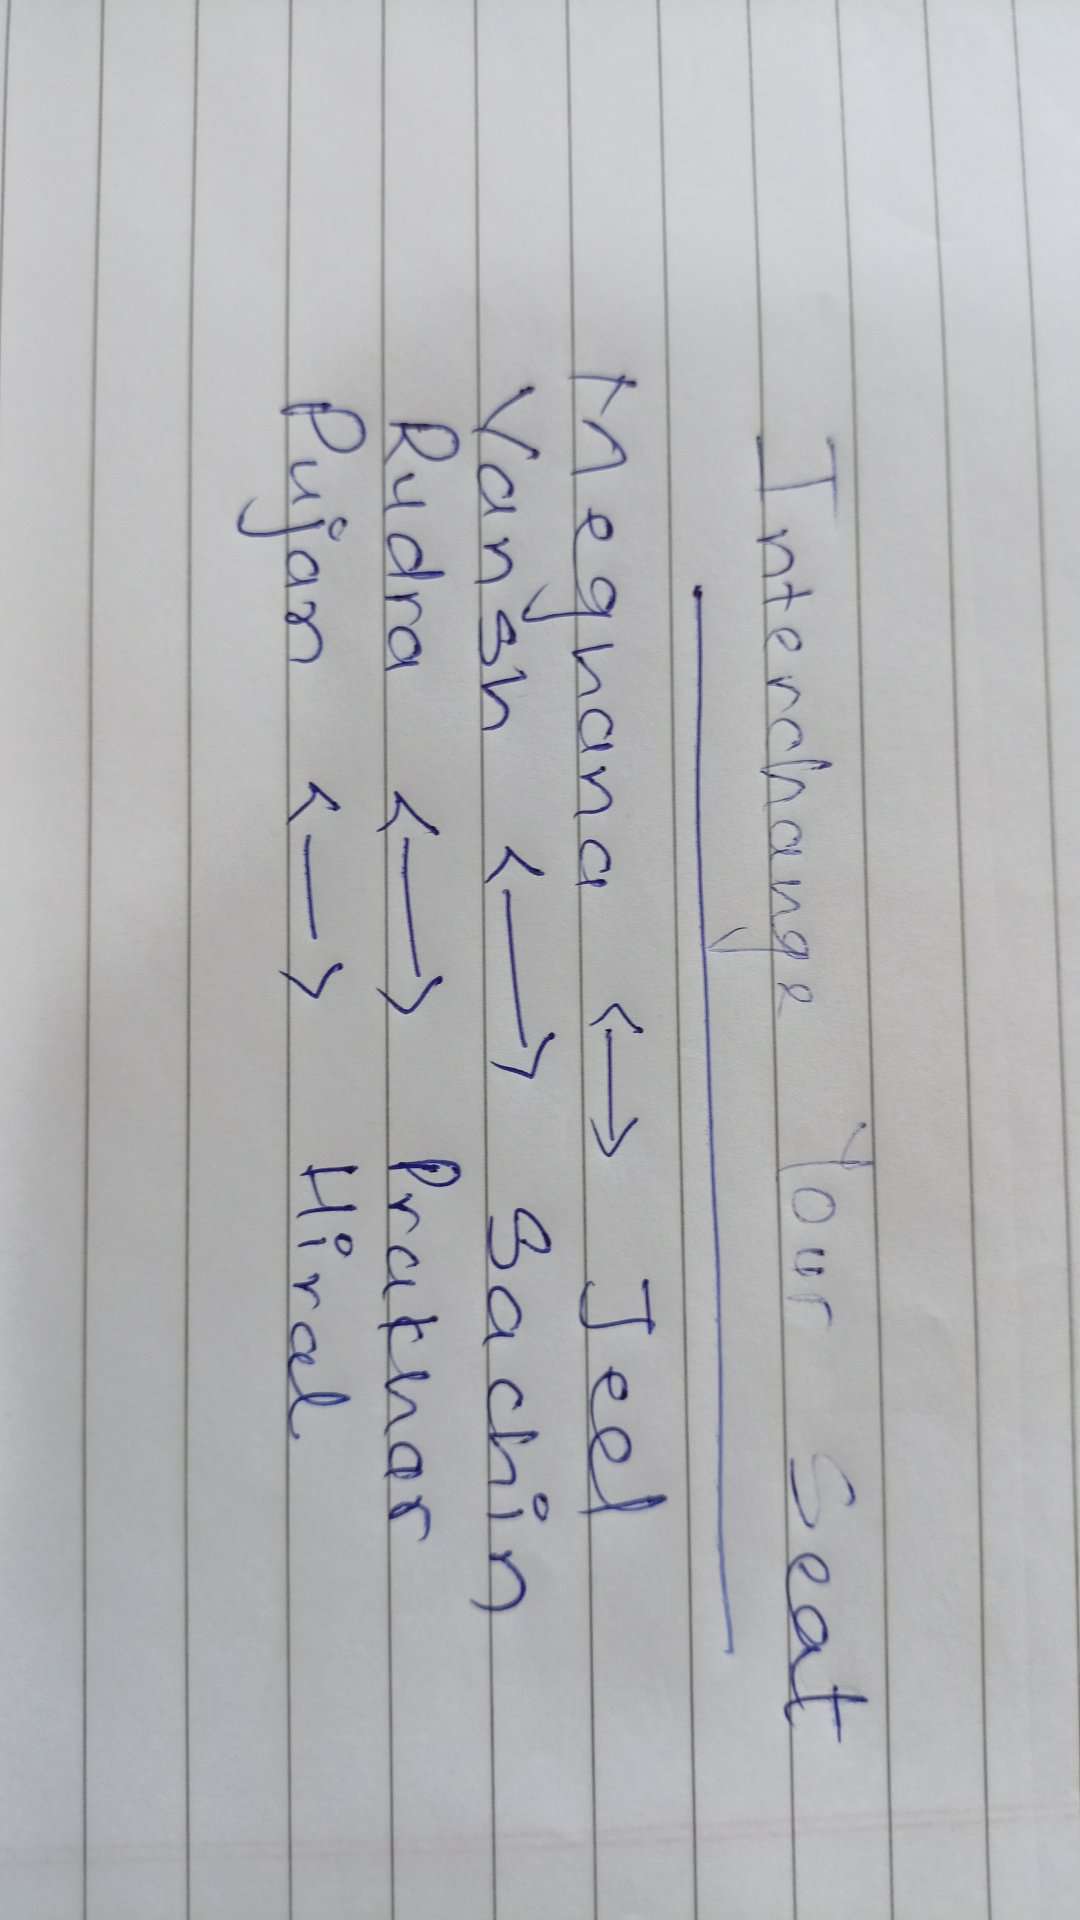 Interchange Your Seat
Meghana ↔ Jeel
Vansh ↔ Sachin
Rudra ↔ Prakhar
Pujan ↔ Hiral